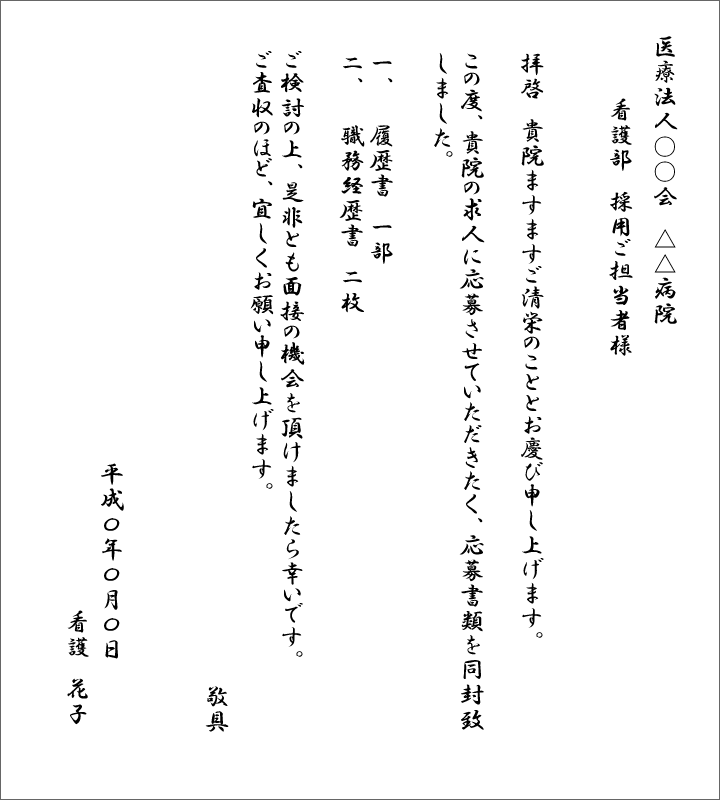 医療法人〇〇会　△△病院
看護部　採用ご担当者様
拝啓　貴院ますますご清栄のこととお慶び申し上げます。
この度、貴院の求人に応募させていただきたく、応募書類を同封致
しました。
一、　履歴書　一部
二、　職務経歴書　二枚
ご検討の上、是非とも面接の機会を頂けましたら幸いです。
ご査収のほど、宜しくお願い申し上げます。
敬具
平成〇年〇月〇日
看護　花子